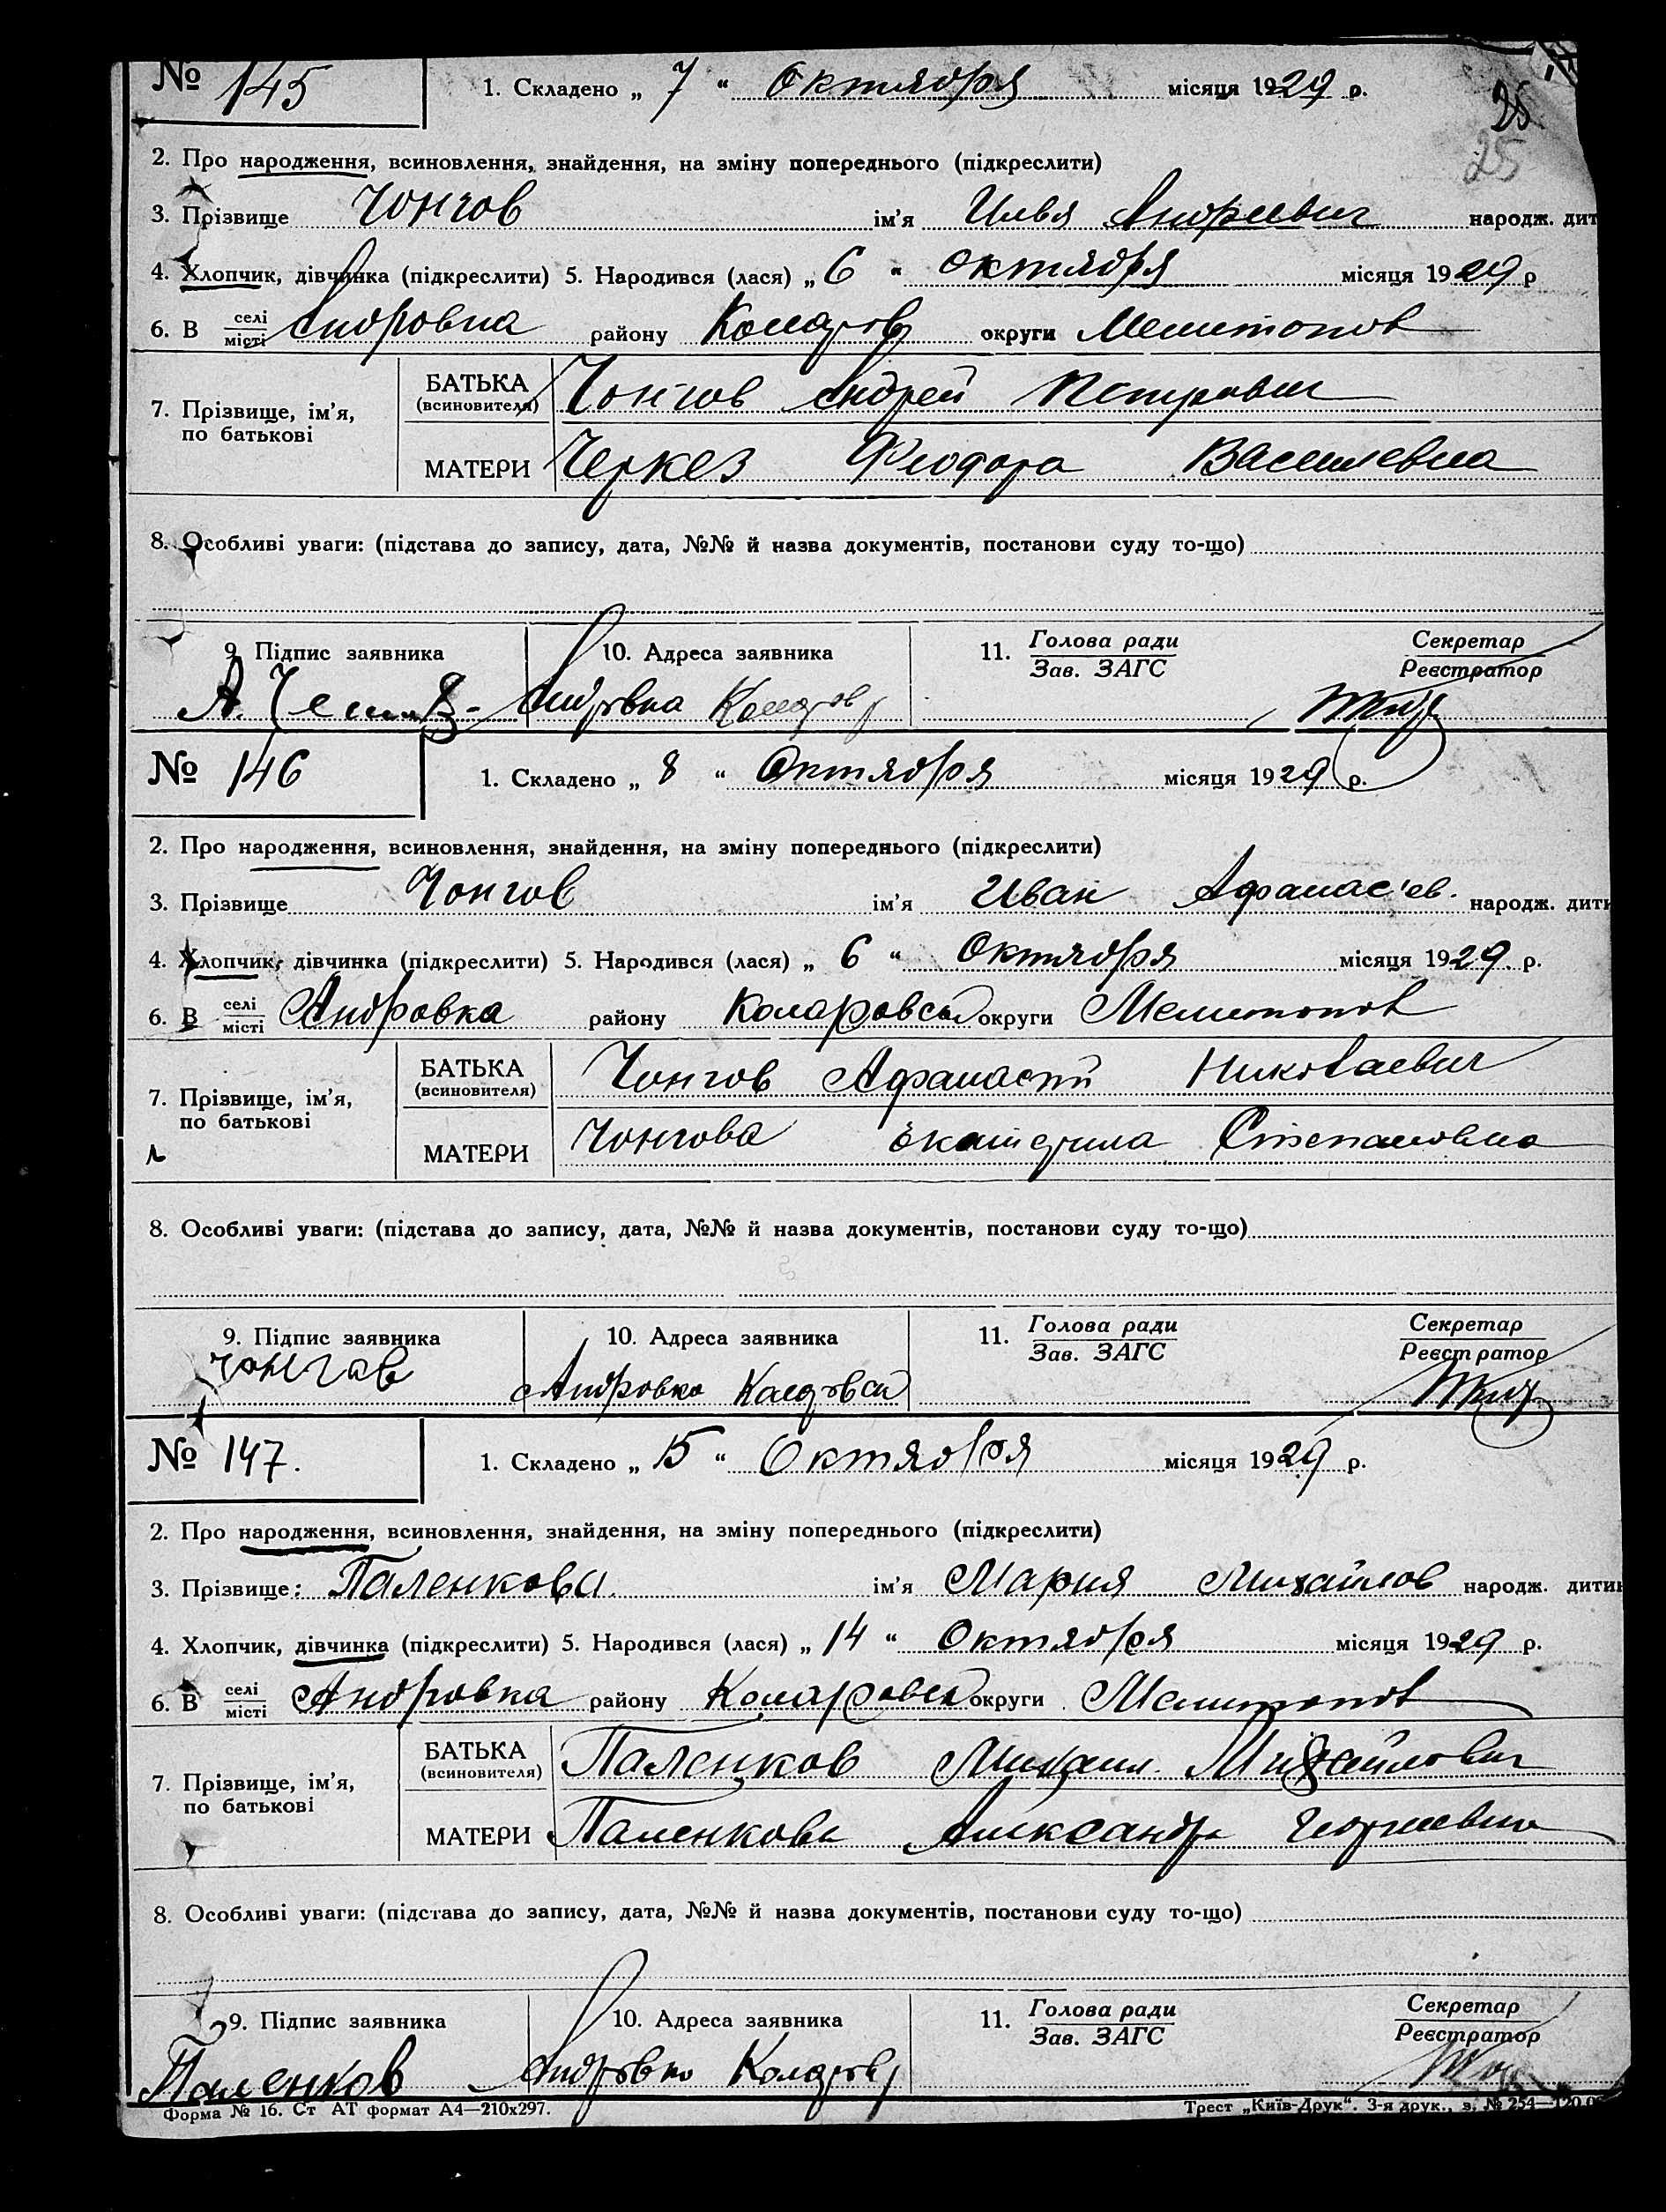 № 145 1. Складено „ 7 “ Октября місяця 1929 р.
25
25
2. Про народження, всиновлення, знайдення, на зміну попереднього (підкреслити)
3. Прізвище Чонгов ім’я Илья Андреевич народж. дит
4. Хлопчик, дівчинка (підкреслити) 5. Народився (лася) „ 6 “ Октября місяця 1929 р
6. В селі/місті Андровка району Коларов округи Мелитопов
7. Прізвище, ім’я, по батькові
БАТЬКА (всиновителя) Чонгов Андрей Петрович
МАТЕРИ Черкез Феодора Василевна
8. Особливі уваги: (підстава до запису, дата, №№ й назва документів, постанови суду то-що)
9. Підпис заявника 10. Адреса заявника 11. Голова ради/Зав. ЗАГС Секретар/Реєстратор
А. Андровка Коларов
№ 146 1. Складено „ 8 “ Октября місяця 1929 р.
2. Про народження, всиновлення, знайдення, на зміну попереднього (підкреслити)
3. Прізвище Чонгов ім’я Иван Афанас'ев. народж. дити
4. Хлопчик, дівчинка (підкреслити) 5. Народився (лася) „ 6 “ Октября місяця 1929. р.
6. В селі/місті Андровка району Коларовск округи Мелитопов
7. Прізвище, ім’я, по батькові
БАТЬКА (всиновителя) Чонгов Афанасий Николаевич
МАТЕРИ Чонгова Екатерина Степановна
8. Особливі уваги: (підстава до запису, дата, №№ й назва документів, постанови суду то-що)
9. Підпис заявника 10. Адреса заявника 11. Голова ради/Зав. ЗАГС Секретар/Реєстратор
Чонгов Андровка Коларовск
№ 147. 1. Складено „ 15 “ Октября місяця 1929 р.
2. Про народження, всиновлення, знайдення, на зміну попереднього (підкреслити)
3. Прізвище: Паленкова. ім’я Мария Михайлов народж. дитин
4. Хлопчик, дівчинка (підкреслити) 5. Народився (лася) „ 14 “ Октября місяця 1929 р.
6. В селі/місті Андровка району Коларовск округи Мелитопов
7. Прізвище, ім’я, по батькові
БАТЬКА (всиновителя) Паленков Михаил Михайлович
МАТЕРИ Паленкова Александра Георгиевна
8. Особливі уваги: (підстава до запису, дата, №№ й назва документів, постанови суду то-що)
9. Підпис заявника 10. Адреса заявника 11. Голова ради/Зав. ЗАГС Секретар/Реєстратор
Паленков Андровка Коларов
Форма № 16. Ст АТ формат А4—210х297. Трест „Київ-Друк“. 3-я друк., з. № 254—120.0